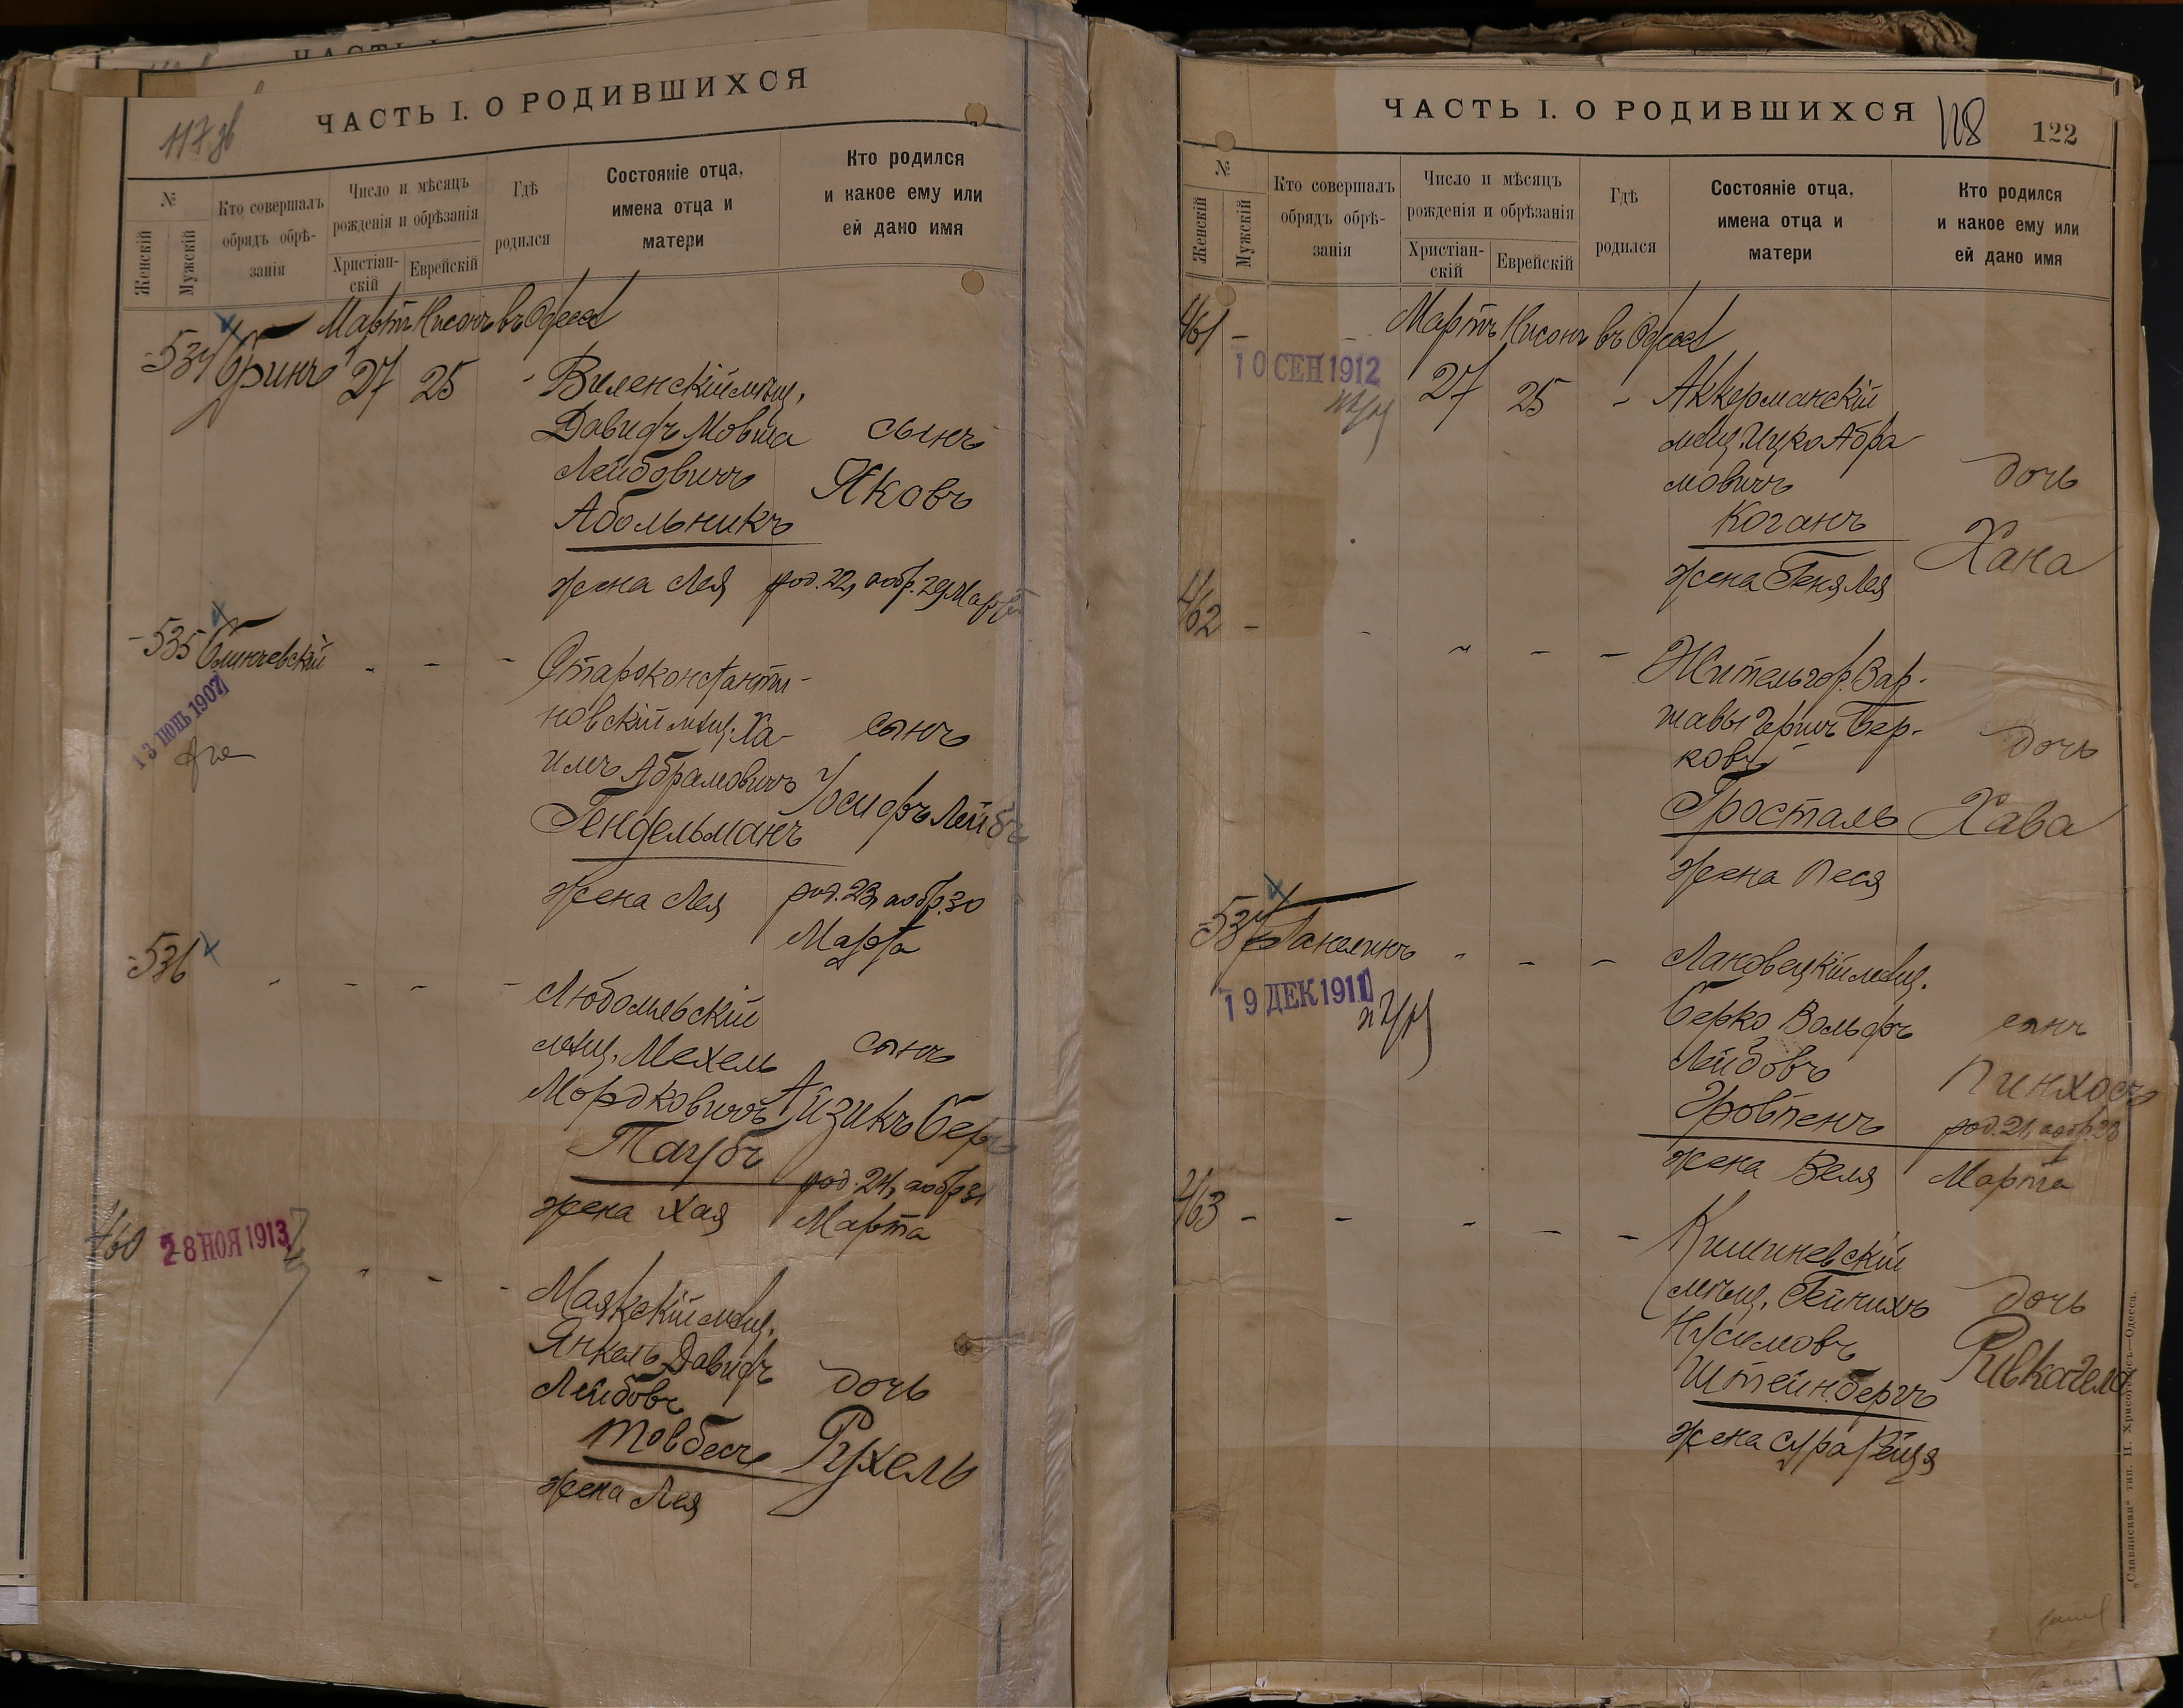 ЧАСТЬ I. О РОДИВШИХСЯ
№
Женскій
Мужскій
Кто совершалъ
обрядъ обрѣ-
занія
Число и мѣсяцъ
рожденія и обрѣзанія
Христіан-
скій
Еврейскій
Гдѣ
родился
Состояніе отца,
имена отца и
матери
Кто родился
и какое ему или
ей дано имя
Мартъ Нисонъ въ Одессѣ
534 27 25 - Виленскій мѣщ.
Давидъ Мовша сынъ
Лейбовичъ Яковъ
Абольникъ
жена Лея род. 22, а обр. 29 Марта
535 - - - Староконстанти-
13 ІЮНЬ 1907
новскій мѣщ. Ха- сынъ
имъ Абрамовичъ Іосифъ Лейбъ
Гендельманъ
жена Лея род. 23, а обр. 30
Марта
536 - - - - Любомльскій
мѣщ. Мехель сынъ
Мордковичъ Айзикъ Беръ
Таубъ род. 24, а обр. 31
жена Хая Марта
460 28 НОЯ 1913 - - - Маякскій мѣщ.
Янкель Давидъ
Лейбовъ дочь
Товбесъ Рухель
жена Лея
ЧАСТЬ I. О РОДИВШИХСЯ
118 122
№
Женскій
Мужскій
Кто совершалъ
обрядъ обрѣ-
занія
Число и мѣсяцъ
рожденія и обрѣзанія
Христіан-
скій
Еврейскій
Гдѣ
родился
Состояніе отца,
имена отца и
матери
Кто родился
и какое ему или
ей дано имя
Мартъ Нисонъ въ Одессѣ
461 - - 27 25 - Аккерманскій
10 СЕН 1912
мѣщ. Ицко Абра-
мовичъ дочь
Коганъ Хана
жена Геня Лея
462 - - - - - Житель гор. Вар-
шавы Геришъ Бер-
ковъ дочь
Гросталь Хава
жена Песя
537 - - - мѣщ.
19 ДЕК 1911
Берко Вольфъ сынъ
Лейбовъ Пинхосъ
род. 21, а обр. 28
жена Веля Марта
463 - - - - - Кишиневскій
мѣщ. дочь
Нусимовъ
Штейнбергъ
жена Сура Рейзя
„Славянская" тип. Н. Хрисогелосъ—Одесса.